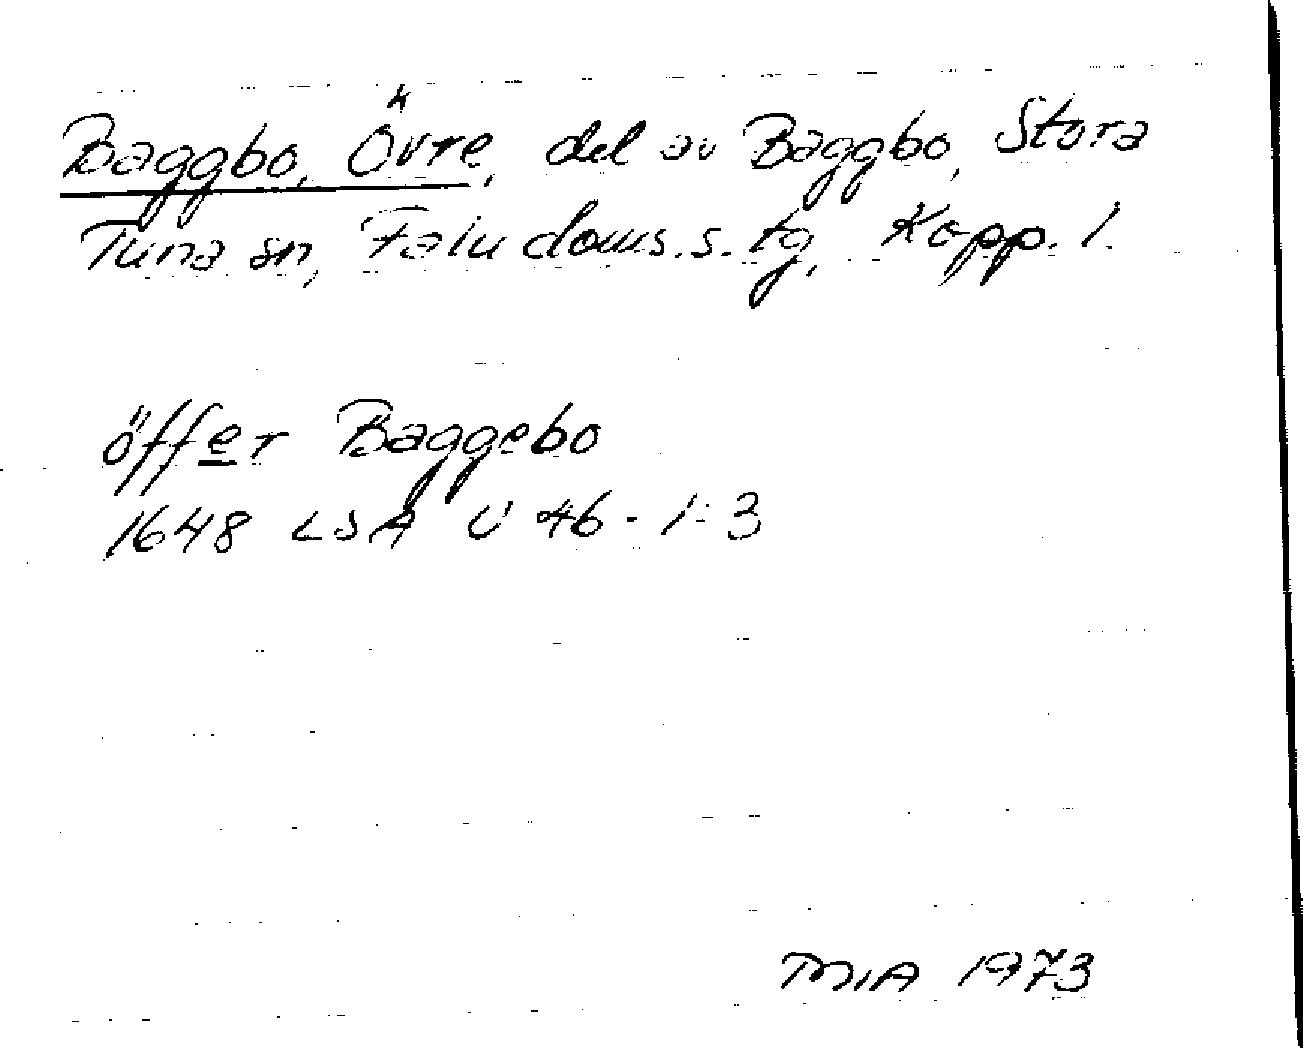 Baggbo, Övre, del av Baggbo, Stora
Tuna sn, Falu doms.s. tg, Kopp. l.
öffer Baggebo
1648 LSA U 46-1:3
MIA 1973